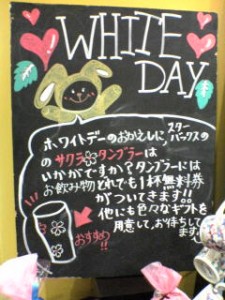 WHITE
DAY
ホワイトデーのおかえしに,スターバックスの
のサクラタンブラーは
いかがですか?タンブラーには
お飲み物どれでも1杯無料券
がついてきます!!
他にも色々なギフトを
用意して,お待ちしてます
おすすめ!!